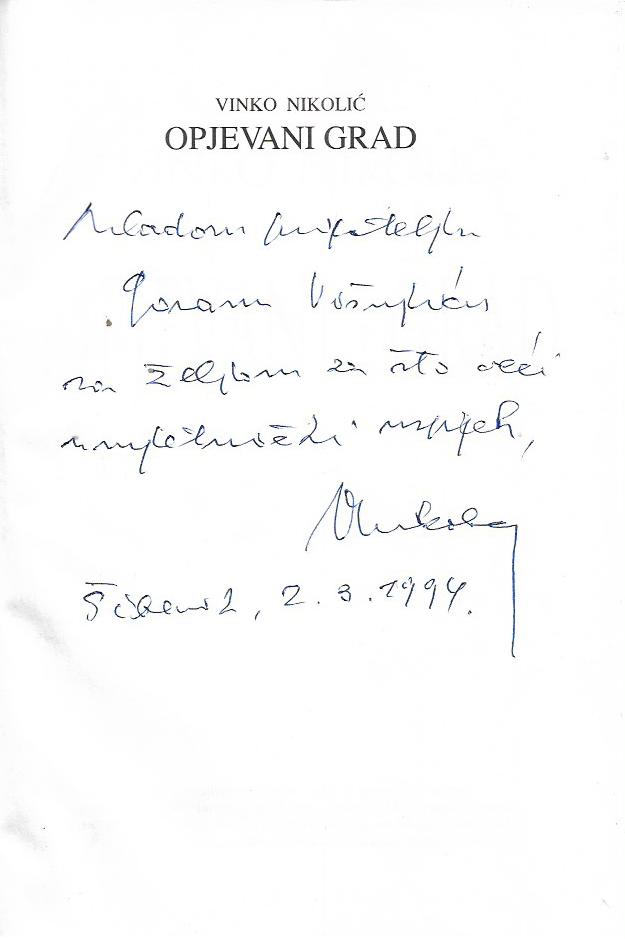 VINKO NIKOLIĆ
OPJEVANI GRAD
Mladom prijatelju
Goranu
sa željom za što veći
umjetnički uspjeh,
VNikolić
Šibenik, 2. 3. 1994.